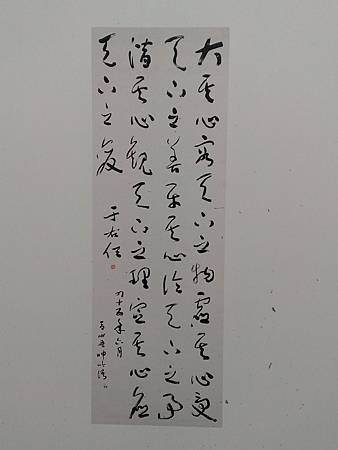 大其心容天下之物虛其心受
天下之善平其心論天下之事
潛其心觀天下之理定其心應
天下之變
于右任
十五年六月